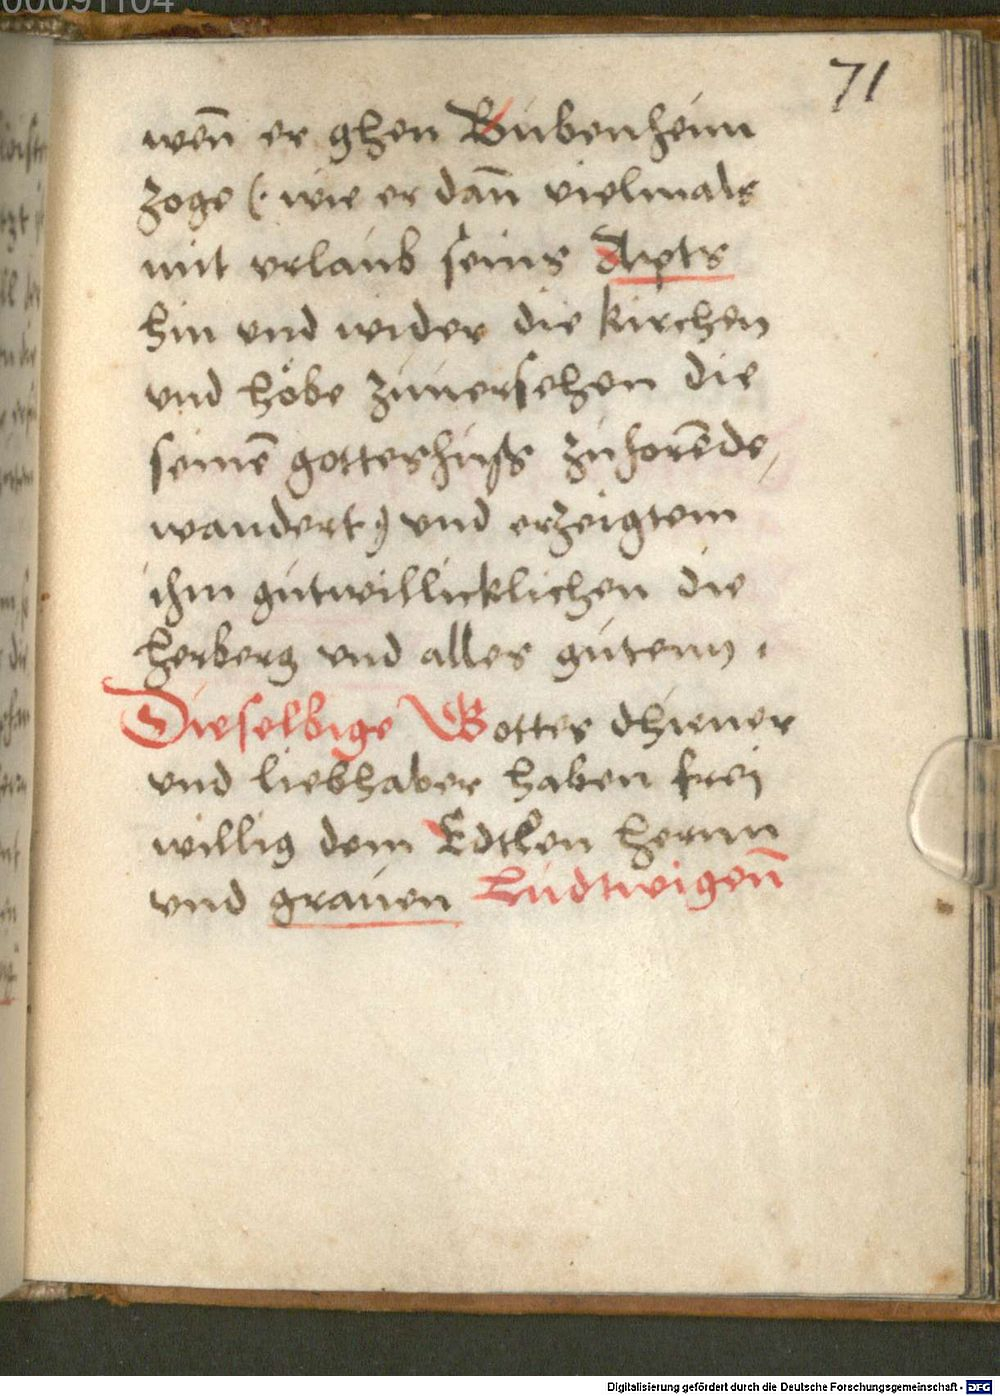 00091104
71
wen̄ er ghen Bubenheim
zoge (: wie er dan̄ vielmals
mit vrlaub seins Apts
hin vnd wider die kirchen
vnd höbe zuuersehen die
seinē gotteshuß zuhorēde,
wandert:) vnd erzeigtem
ihm gutwillicklichen die
herberg vnd alles gutenn .
Dieselbige Gottes dhiener
vnd liebhaber haben frei
willig dem Edtlen hernn
vnd grauen Ludtwigen̄
Digitalisierung gefördert durch die Deutsche Forschungsgemeinschaft - DFG